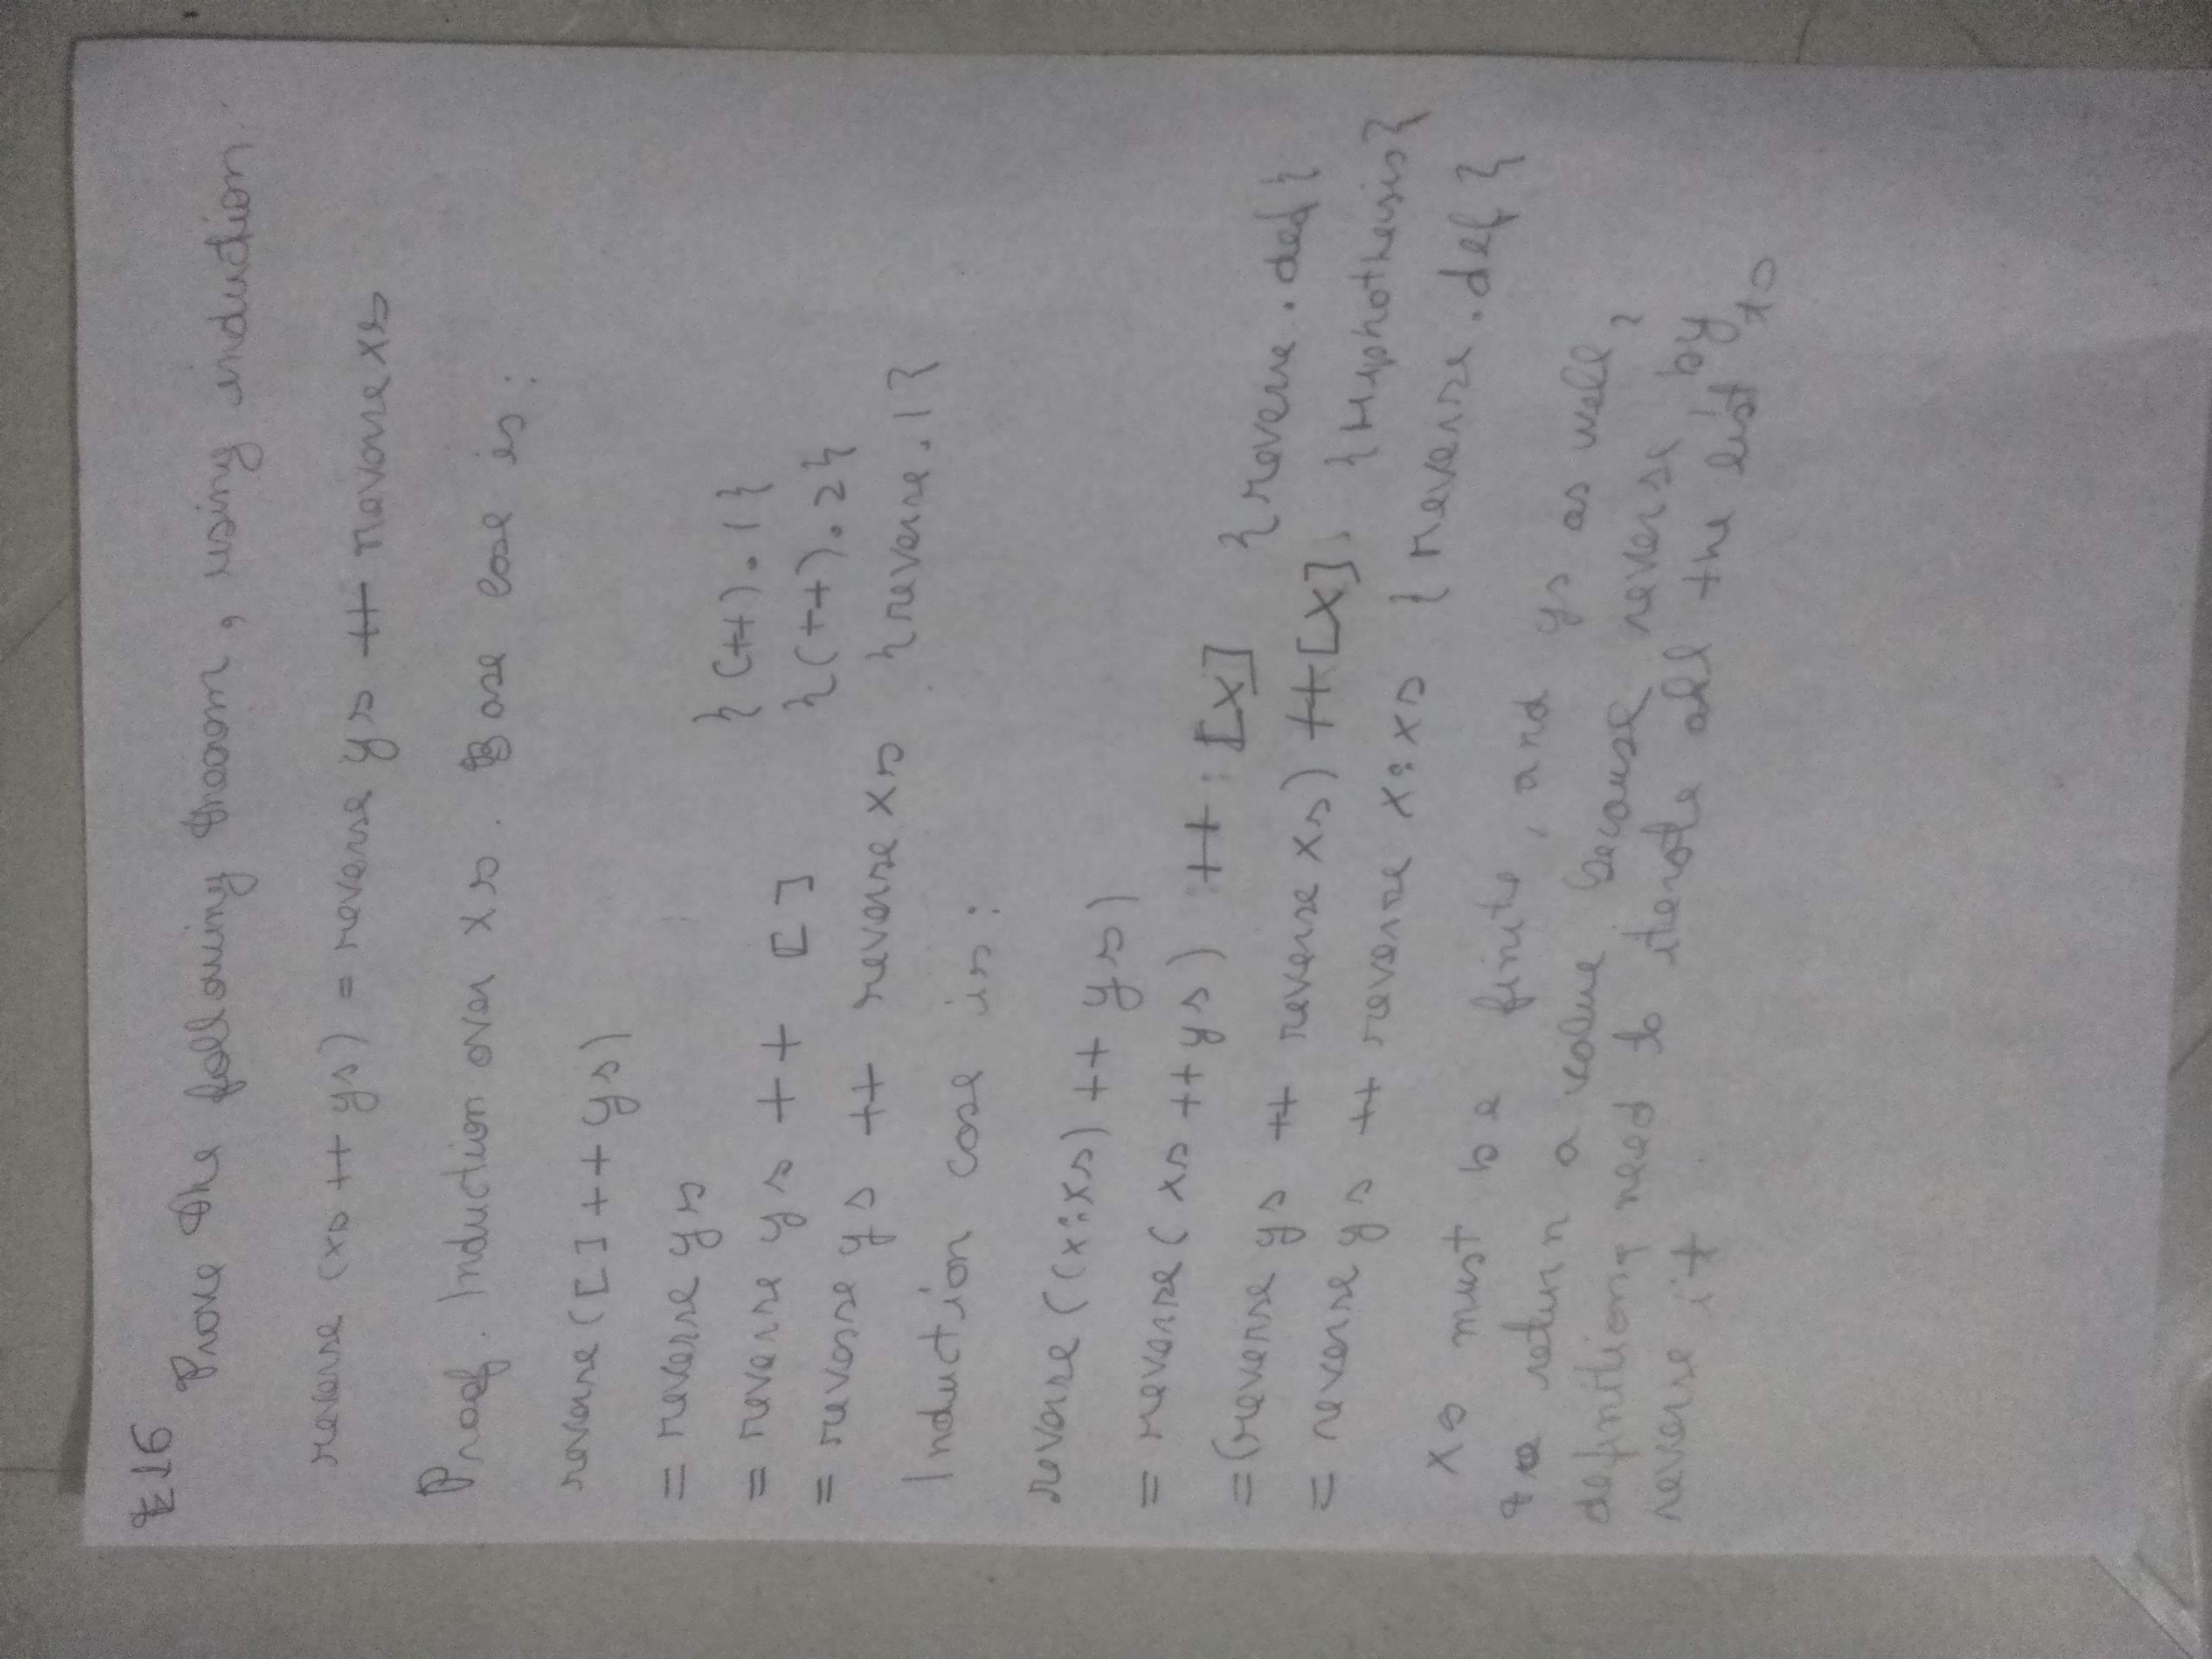 E16
Prove the following theorem, using induction
reverse (xs ++ ys) = reverse ys ++ reverse xs
Proof. Induction over xs. Base case is:
reverse([] ++ ys)
= reverse ys {(++).1}
= reverse ys ++ [] {(++).2}
= reverse ys ++ reverse xs {reverse.1}
Induction case is:
reverse((x:xs) ++ ys)
= reverse(xs ++ ys) ++ [x] {reverse.def}
= (reverse ys ++ reverse xs) ++ [x]. {Hyphothesis}
= reverse ys ++ reverse x:xs {reverse.def}
xs must be finite, and ys as well,
to return a value because reverse, by
definition, need to iterate all the list to
reverse it